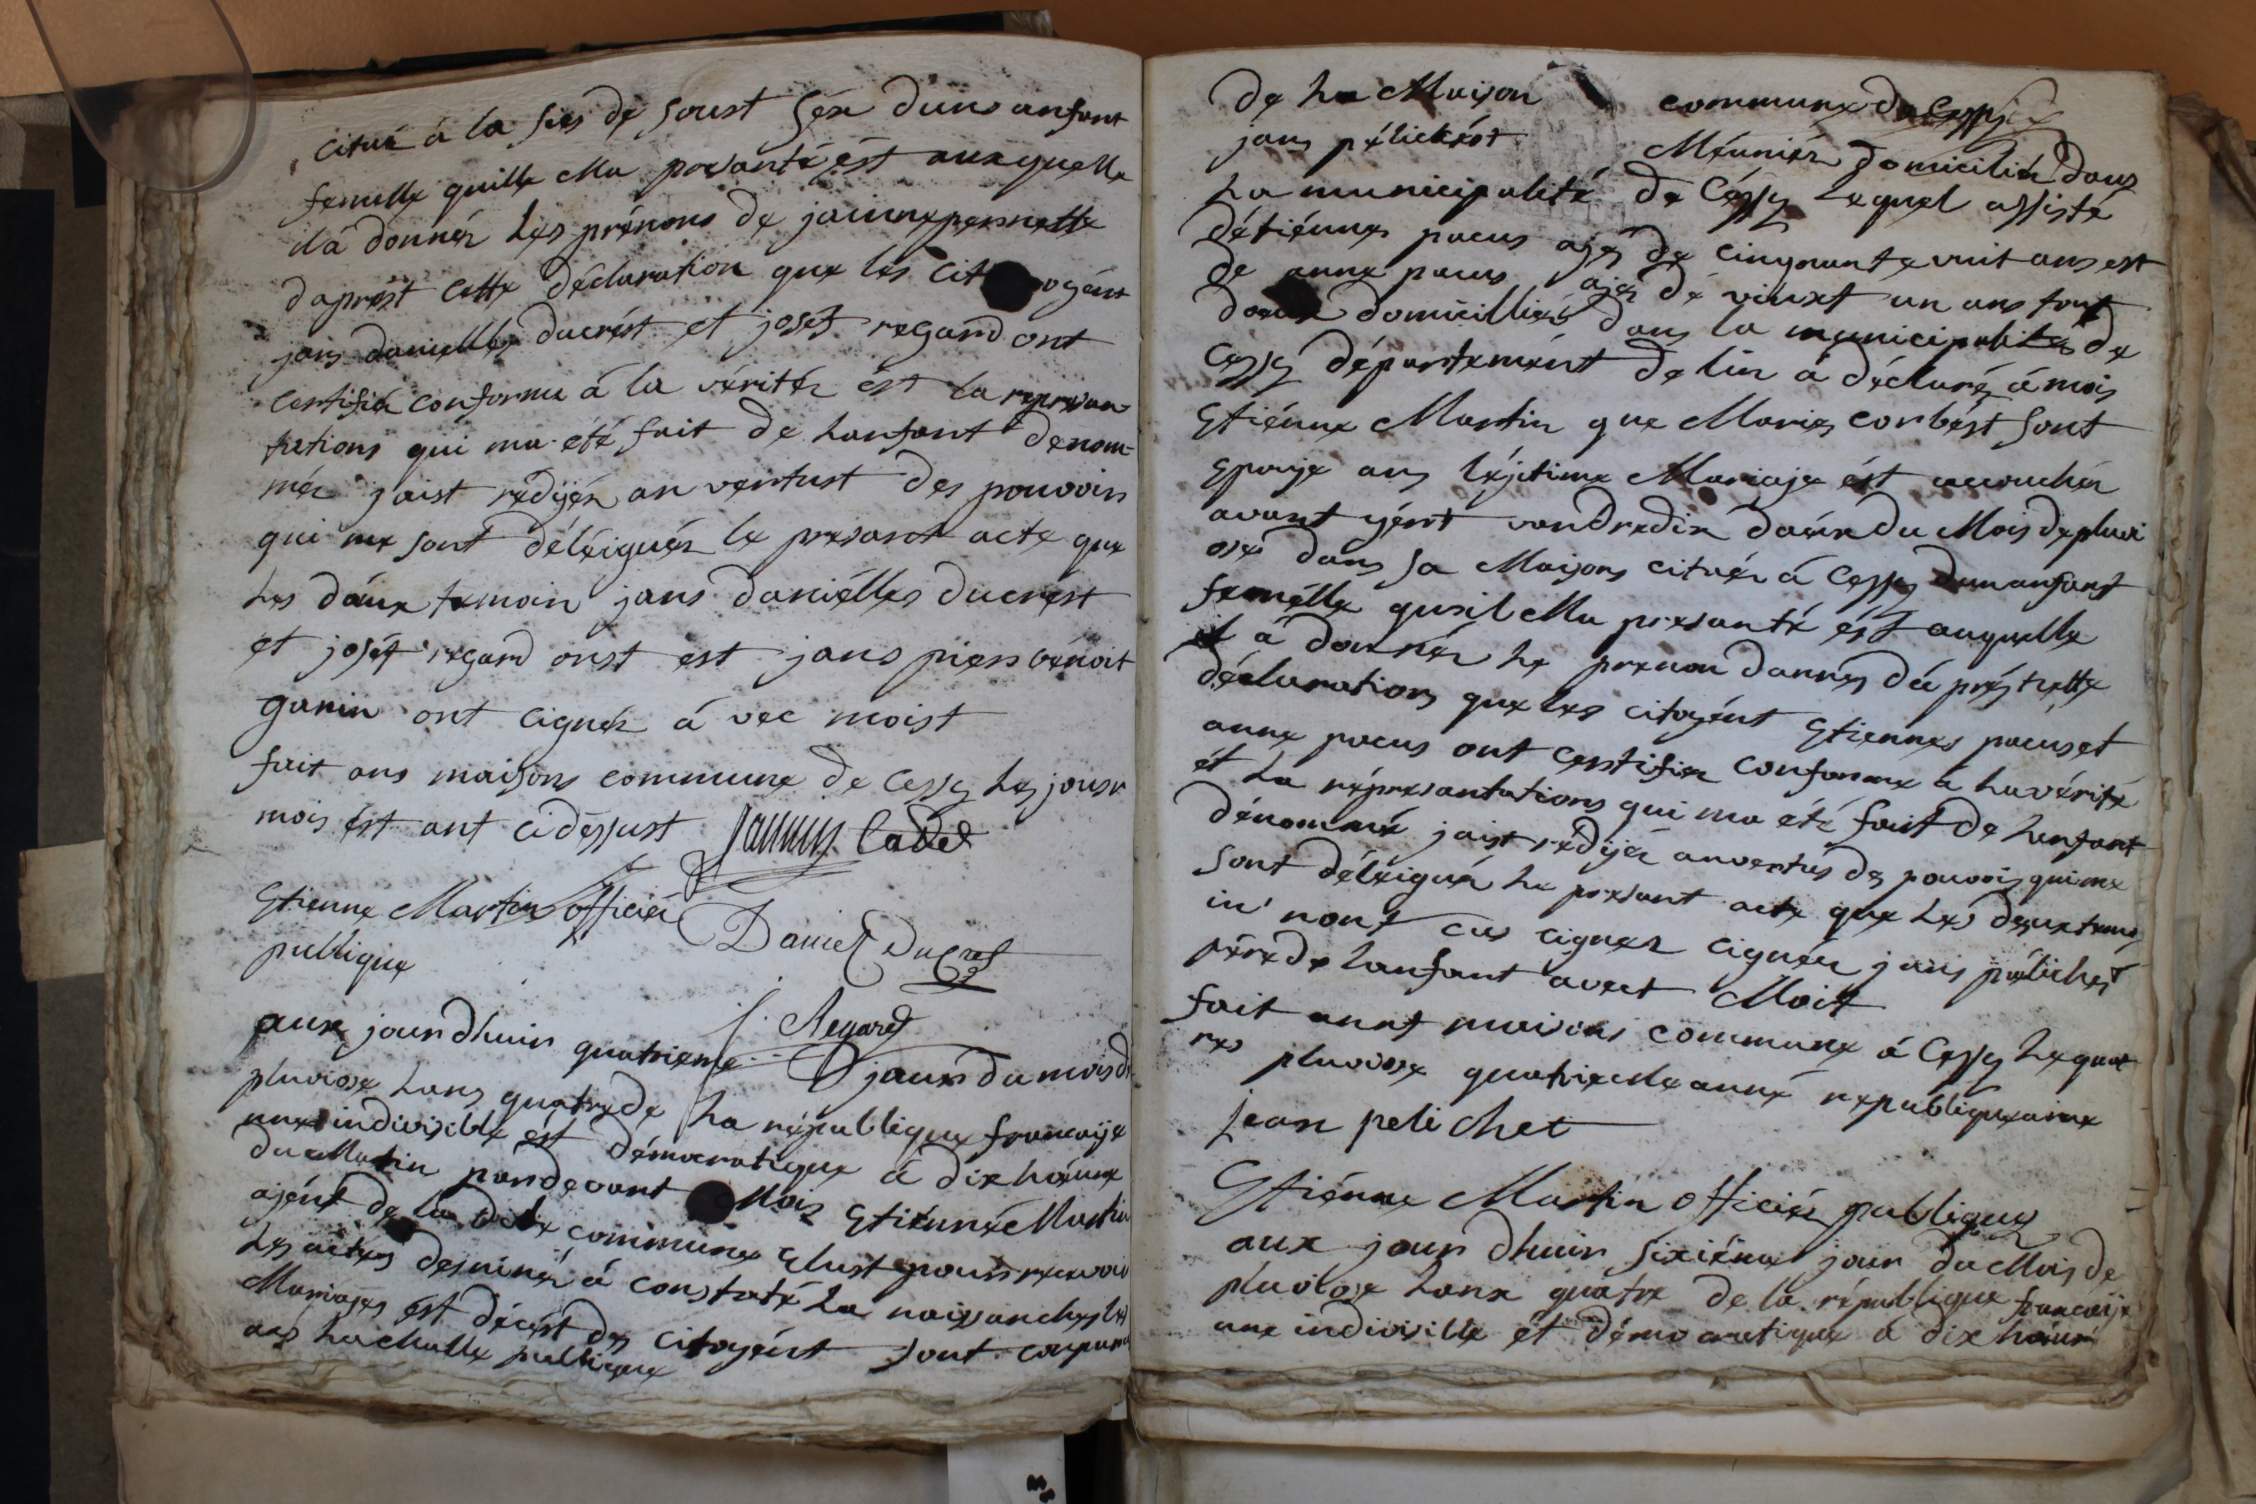 citué á la sies de soust Séx dun anfant
femelle quille Ma pozanté ést auxquelle
ila donnér les prénoms de jannepernette
daprést cette déclaration que les cit oyént
jans danielles ducrést et joséf regard ont
certifiér conforme á la véritér ést la reprezan
tations qui ma été fait de lanfant denom-
mér jaist redijér an vertust des pouvoirs
qui me sont déléiguér le prezant acte que
les dáux temoin jans daniélles ducrest
et joséf regard onst est jans piers bénoit
ganin ont cignér á vec moist
fait ans maisons commune de Cessy les jour
mois ést ant cidessust Cadet
Etienne Martin officiér
publique
Daniel Ducret
J. Regard
aux jourdhuin quatrieme jours du mois d
pluviose lans quatrede la républiqux francaije
une indivisible ést démocratique á dix háure
du Matin pardevant Mois Etiénne Martin
ajént de la dite commune Elust pour recevoir
les actes destinér á constaté la naissanches les
Mariages ést décést des citoyént sont compar
ans la challe publique
de la Maison commune de Cessy
jans pélichét Méuniér domiciliér dans
La municipalité de Céssy Lequel assisté
détiénnes pacus ajér de cinquante vuit ans est
de anne pacus ajér de vinxt un ans tout
deux domicilliér dans la municipalité de
Cessy département de lin á déclaré á mois
Etiénne Martin que Maries corbést sont
Epouje ans léjitime Mariaje ést accouchér
avant yért vandredix dáux du Mois de pluvi
ose dans sa Maisons cituér á Cessy dun anfant
femélle qusil Ma prezanté ést auquelle
il á donnér le prenon dannes dá prés cette
déclarations que les citoyént Etiennes pacus et
anne pacus ont certifier conforme á la vérité
ét la réprezantations qui ma été fait de lanfant
dénommé jaist rédijér anvertus des pouvois qui me
sont déléigué le prezant acte que les deux temo
in nont cus cigner cignér jans pélichet
pére de lanfant avect Moist
fait anns maisons commune á Cessy le quat
res pluviose quatrieme anné républiquaine
jean peli chet
Etiénne Martin officiér publique
aux jour dhuin sixiéme jour du Mois de
pluviose lans quátre de la république francaije
une indivisible et démocratique á dix háure